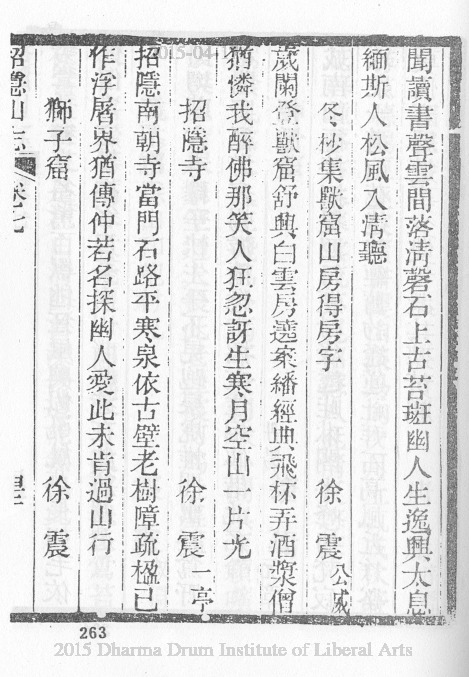 聞讀書聲雲間落清磬石上古苔斑幽人生逸興太息
緬斯人松風入清聽
冬杪集獸窟山房得房字 徐震公威
歲闌登獸窟舒興白雲房遶案繙經典飛杯弄酒漿僧
猶憐我醉佛那笑人狂忽訝生寒月空山一片光
招隱寺 徐震一亭
招隱南朝寺當門石路平寒泉依古壁老樹障疏楹已
作浮屠界猶傳仲若名探幽人愛此未肯過山行
獅子窟 徐震
招隱山志 卷之七
263
2015 Dharma Drum Institute of Liberal Arts